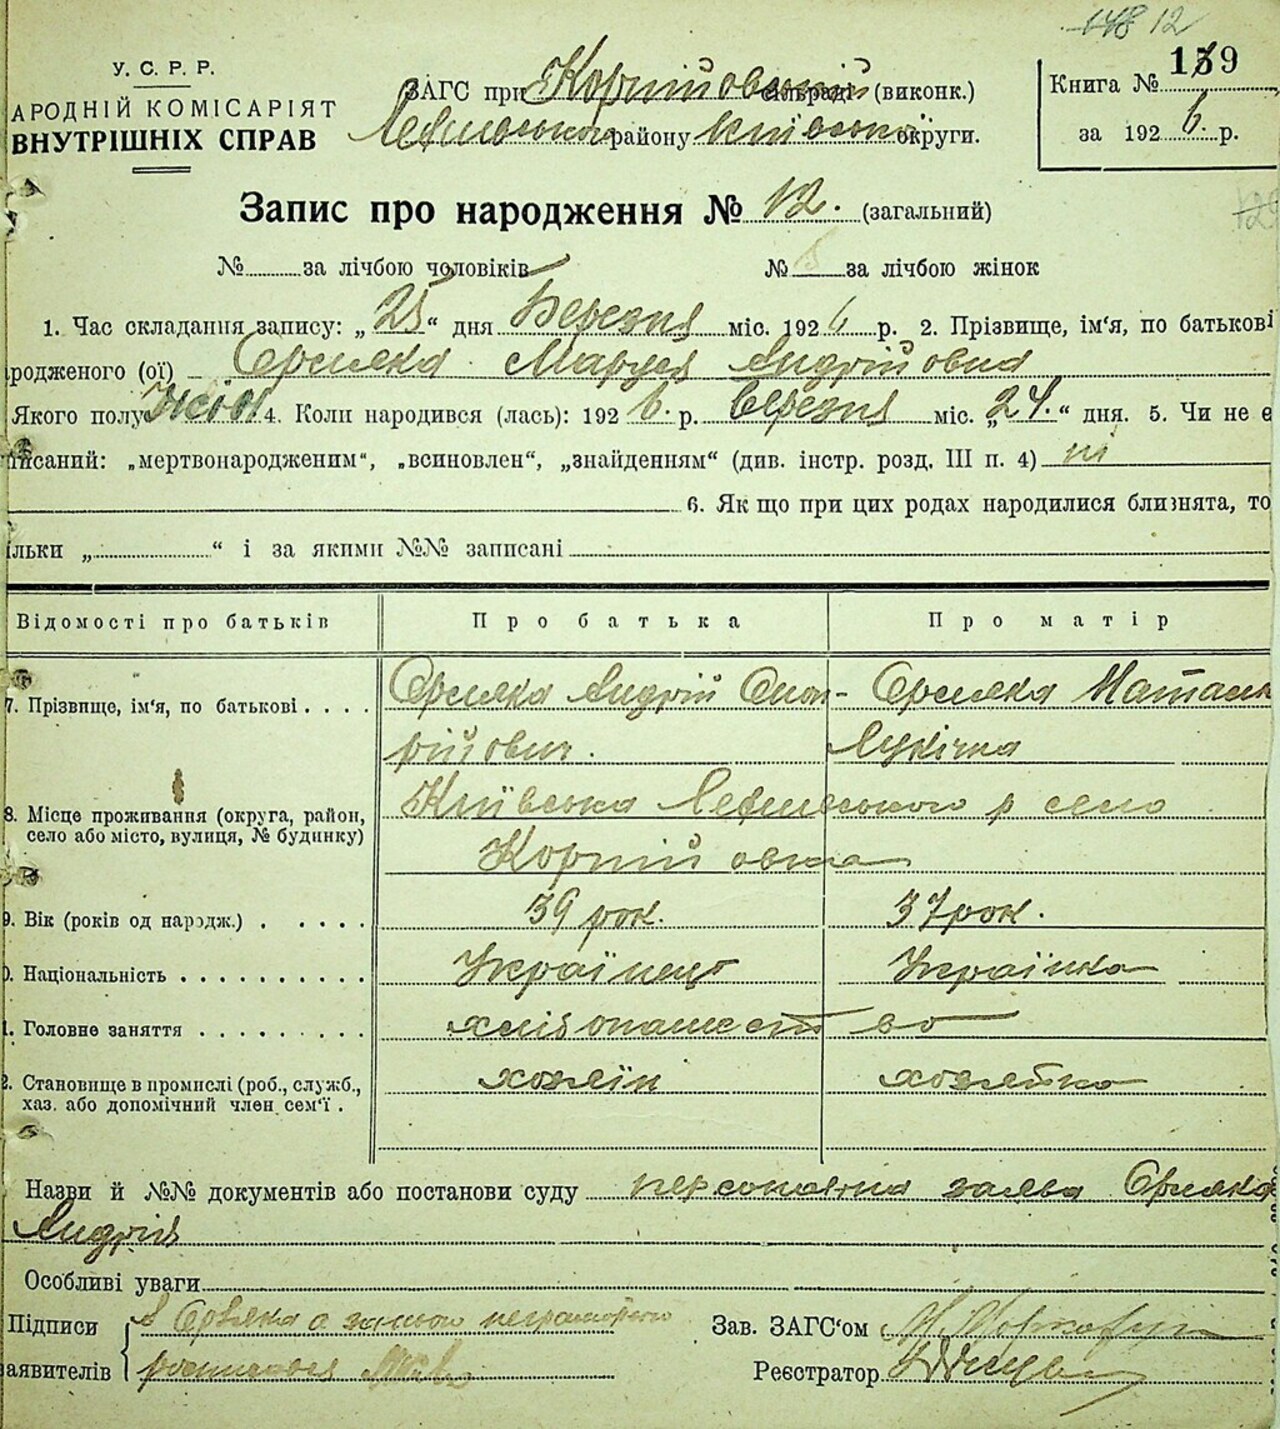 148 12
У. С. Р. Р.
АРОДНІЙ КОМІСАРІЯТ
ВНУТРІШНІХ СПРАВ
ЗАГС при Корнійовській сільраді (виконк.)
району Київської округи.
Книга № 139
за 1926 р.
Запис про народження № 12. (загальний)
№ за лічбою чоловіків
№ за лічбою жінок
1. Час складання запису: „25“ дня Березня міс. 1926 р. 2. Прізвище, ім'я, по батькові
родженого (ої) Марія Андрійовна
Якого полу Жіон. 4. Коли народився (лась): 1926 р. березня міс. „24.“ дня. 5. Чи не є
писаний: „мертвонародженим“, „всиновлен“, „знайденням“ (див. інстр. розд. III п. 4) ні
6. Як що при цих родах народилися близнята, то
ільки „ “ і за якими №№ записані
Відомості про батьків
Про батька
Про матір
7. Прізвище, ім'я, по батькові . . . .
Андрій
рійович.
8. Місце проживання (округа, район,
село або місто, вулиця, № будинку)
Київська р село
Корнійовка
9. Вік (років од народж.) . . . . .
39 рок.
37 рок.
0. Національність . . . . . . . . . .
Українець
Українка
1. Головне заняття . . . . . . . . .
хліборопашество
2. Становище в промислі (роб., служб.,
хаз. або допомічний член сем'ї .
хозяїн
хозяйка
Назви й №№ документів або постанови суду персональна заява
Андрія
Особливі уваги
Підписи
аявителів
а за його неграмотного
росписався
Зав. ЗАГС'ом
Реєстратор